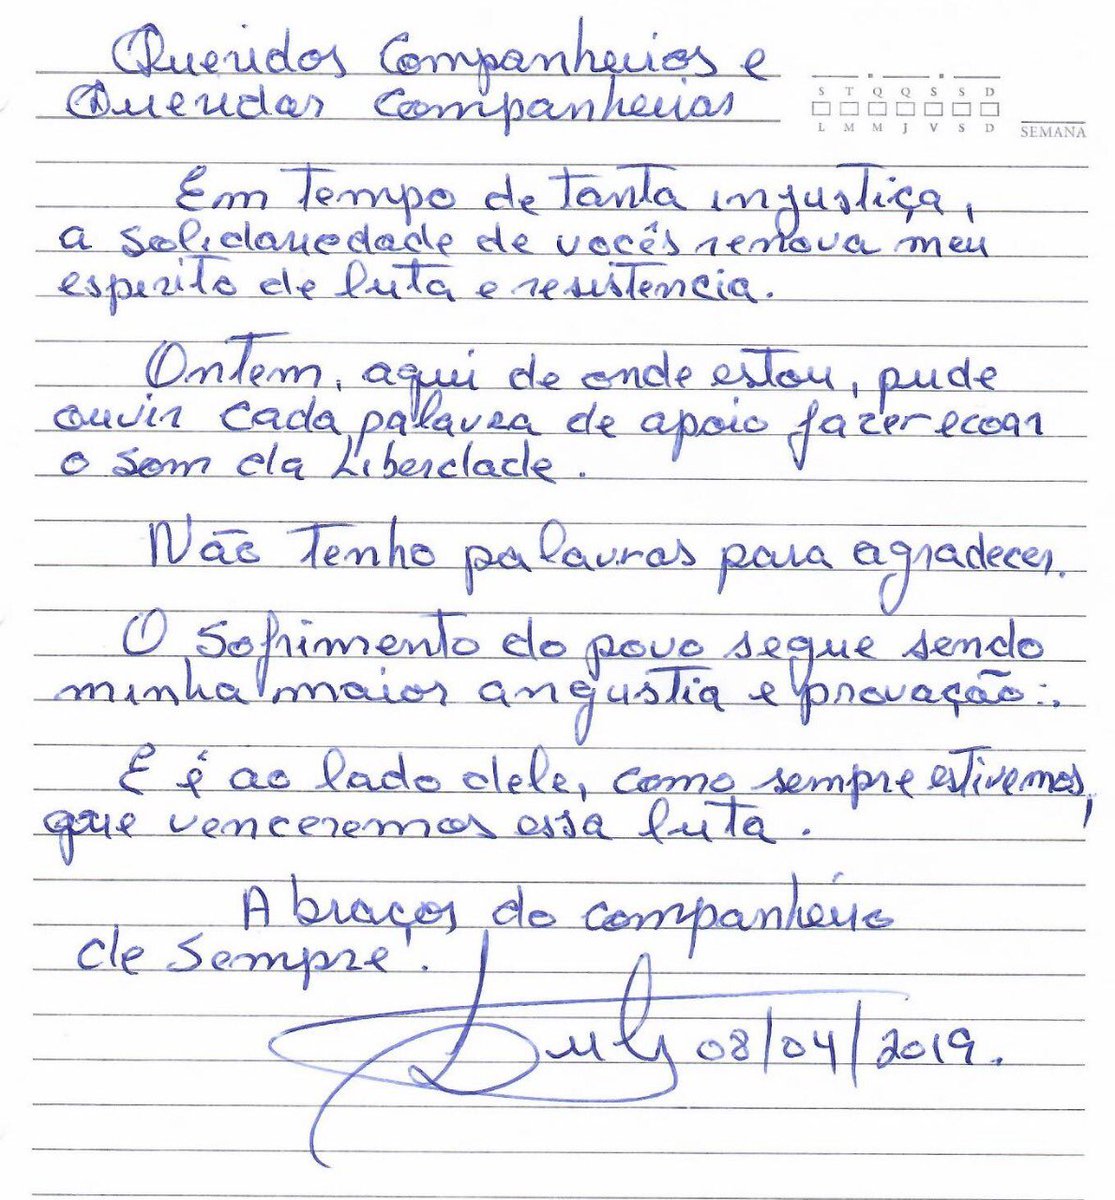 Queridos Companheiros e
Queridas Companheiras
S T Q Q S S D
L M M J V S D
SEMANA
Em tempo de tanta injustiça,
a solidariedade de vocês renova meu
espirito de luta e resistencia.
Ontem, aqui de onde estou, pude
ouvir cada palavra de apoio fazer ecoar
o som da Liberdade.
Não tenho palavras para agradecer.
O sofrimento do povo segue sendo
minha maior angustia e provação..
E é ao lado dele, como sempre estivemos,
que venceremos essa luta.
Abraços do companheiro
de sempre!
Lula 08/04/2019.